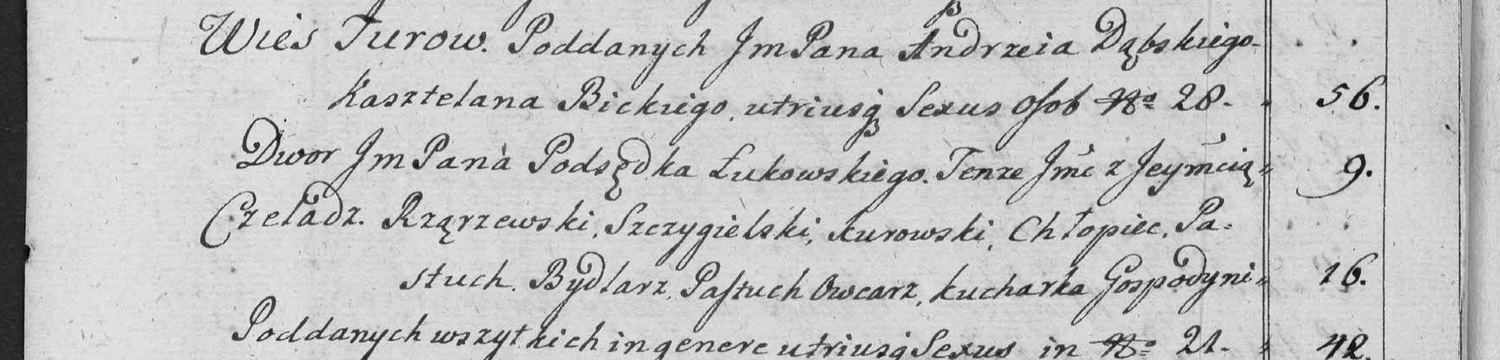 Wies Turow. Poddanych Jm Pana Andrzeia Dąbskiego
Kasztelana Bickiego, utriusq Sexus Osob No 28. 56.
Dwor Jm Pana Podsędka Łukowskiego. Tenze Jmć z Jeymcią 9.
Czeladz. Rząrzewski, Szczygielski, Kurowski, Chłopiec, Pa-
stuch, Bydlarz, Pastuch Owcarz, Kucharka Gospodyni 16.
Poddanych wszytkich in genere utriusq Sexus in No 21. 42.